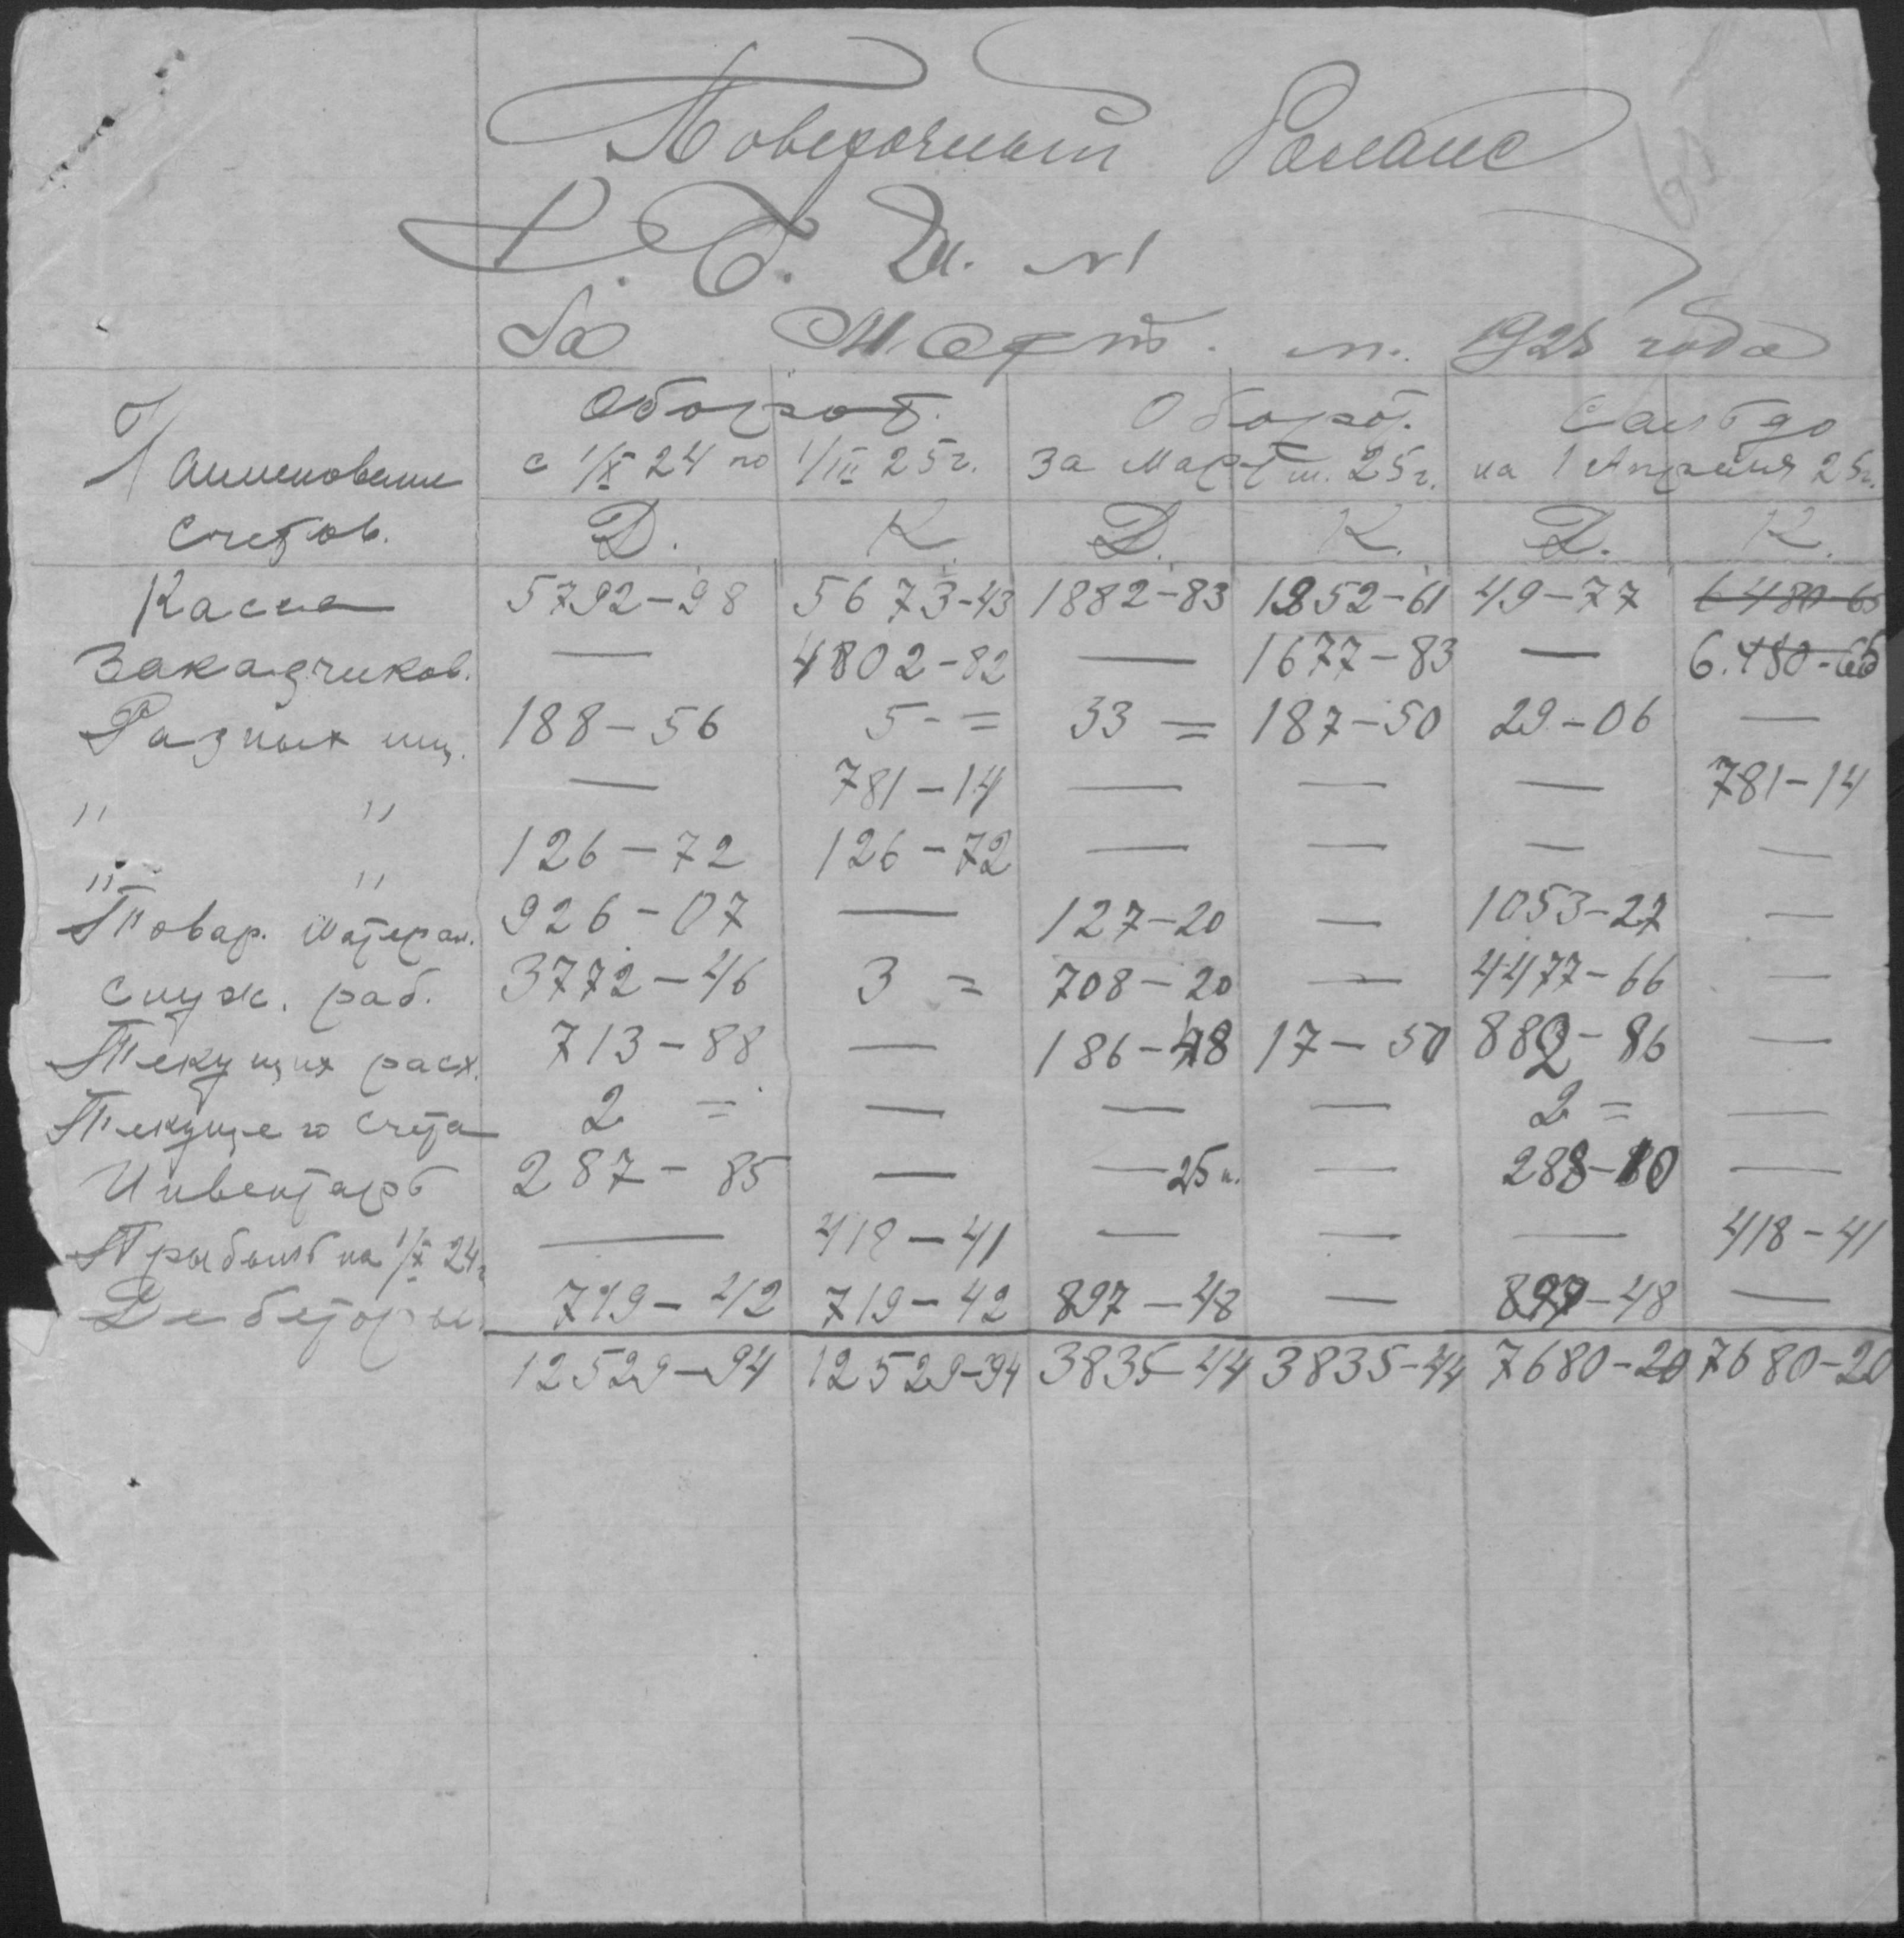 Поверочный Баланс
№1
За Март м. 1925 года
Наименование Счетов.
Оборот. с 1/X 24 по 1/III 25г.
Оборот. За Март м. 25г.
Сальдо на 1 Апреля 25г.
Д. К. Д. К. Д. К.
Касса 5792-98 5673-43 1882-83 1952-61 49-77 6480-65
Заказчиков. — 4802-82 — 1677-83 — 6.480-65
Разных лиц. 188-56 5-= 33 = 187-50 29-06 —
" " — 781-14 — — — 781-14
" " 126-72 126-72 — — — —
Товар. Матерал. 926-07 — 127-20 — 1053-27 —
Служ. раб. 3772-46 3 = 708-20 — 4477-66 —
Текущих расх. 713-88 — 186-48 17-50 882-86 —
Текущего счета 2 = — — — 2 = —
Инвентарь 287-85 — — 25 к. — 288-10 —
Прыбыль на 1/X 24г — 418-41 — — — 418-41
Дебеторы. 719-42 719-42 897-48 — 897-48 —
12529-94 12529-94 3835-44 3835-44 7680-20 7680-20